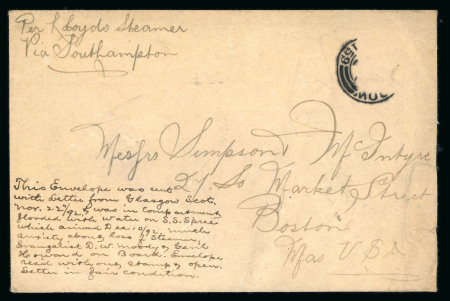 Per N Lloyds Steamer
Via Southampton
Messrs Simpson & McIntyre
27 So. Market Street
Boston
Mas USA
This Envelope was sent
with Letter from Glasgow Scot.
Nov. 22/92, & was in compartment
flooded with water on S.S. Spree
which arrived Dec. 10/92. Much
anxiety about loss of Steamer,
Evangelist D. W. Moody & Gen'l
Howard on Board. Envelope
recd without stamp & open,
Letter in fair condition.